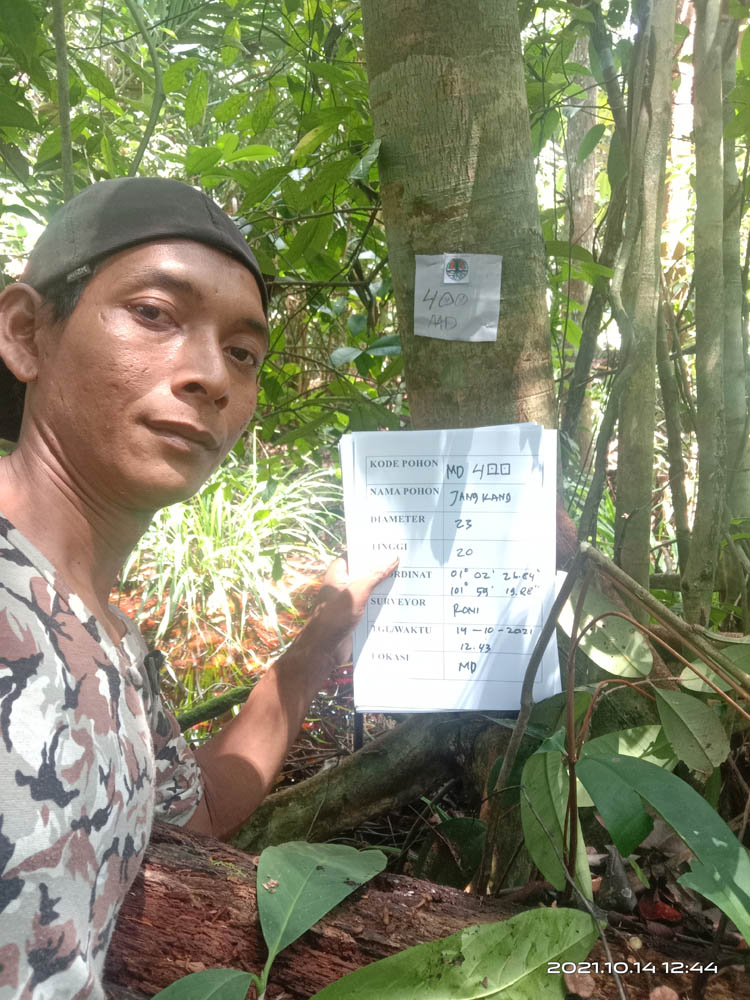 400
MD
KODE POHON MD 400
NAMA POHON JANGKANG
DIAMETER 23
TINGGI 20
ORDINAT 01° 02' 26.84"
101° 59' 19.28"
SURVEYOR RONI
TGL/WAKTU 14-10-2021
12.43
LOKASI MD
2021.10.14 12:44